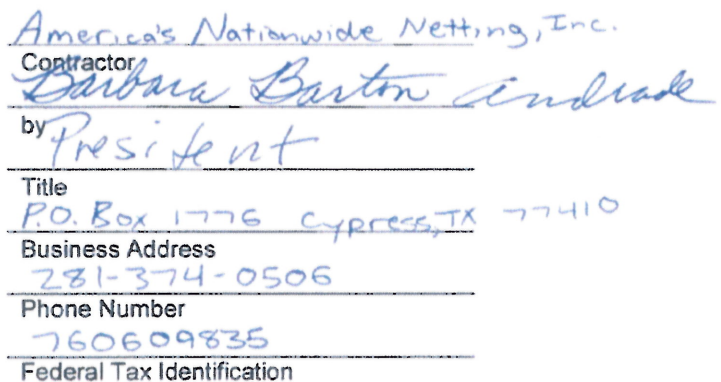 America's Nationwide Netting, Inc.
Contractor
Barbara Barton Andrade
by
President
Title
P.O. Box 1776 Cypress, TX 77410
Business Address
281-374-0506
Phone Number
760609835
Federal Tax Identification